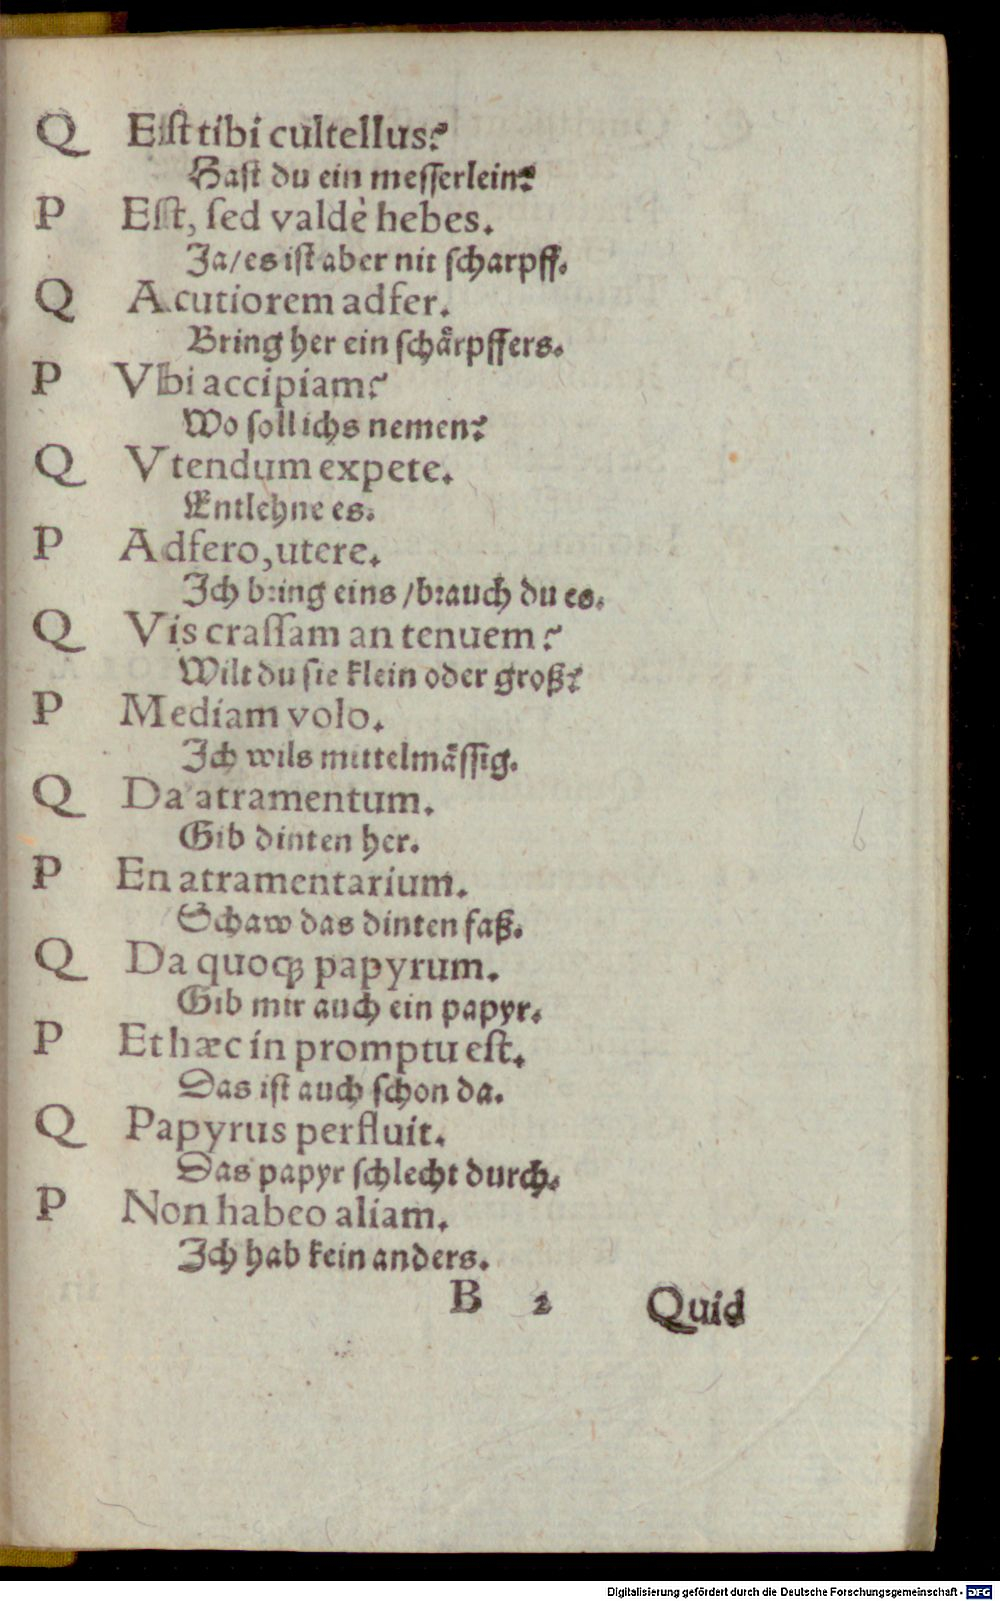 Q Est tibi cultellus?
Hast du ein messerlein?
P Est, sed valdè hebes.
Ja/ es ist aber nit scharpff.
Q Acutiorem adfer.
Bring her ein schaͤrpffers.
P Vbi accipiam?
Wo soll ichs nemen?
Q Vtendum expete.
Entlehne es.
P Adfero, utere.
Ich bring eins / brauch du es.
Q Vis crassam an tenuem?
Wilt du sie klein oder groß?
P Mediam volo.
Ich wils mittelmaͤssig.
Q Da atramentum.
Gib dinten her.
P En atramentarium.
Schaw das dinten faß.
Q Da quoqꝫ papyrum.
Gib mir auch ein papyr.
P Et hæc in promptu est.
Das ist auch schon da.
Q Papyrus perfluit.
Das papyr schlecht durch.
P Non habeo aliam.
Ich hab kein anders.
B 2 Quid
Digitalisierung gefördert durch die Deutsche Forschungsgemeinschaft - DFG